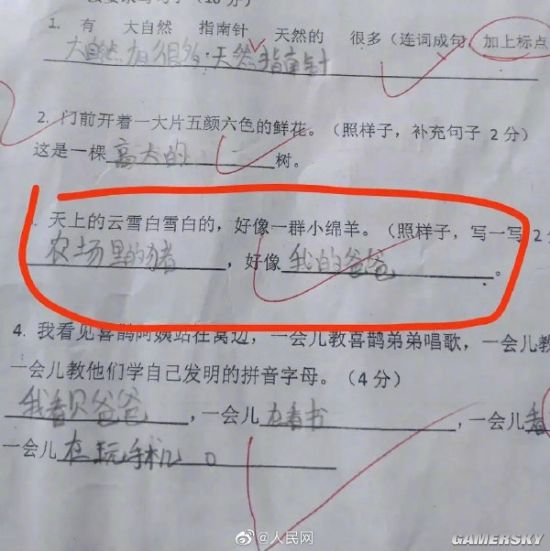 1. 有 大自然 指南针 天然的 很多(连词成句,加上标点
大自然有很多天然指南针
2. 门前开着一大片五颜六色的鲜花。(照样子,补充句子 2分)
这是一棵 高大的 树。
天上的云雪白雪白的,好像一群小绵羊。(照样子,写一写 2
农场里的猪,好像 我的爸爸。
4. 我看见喜鹊阿姨站在窝边,一会儿教喜鹊弟弟唱歌,一会儿教
一会儿教他们学自己发明的拼音字母。(4分)
我看见爸爸,一会儿 在看书,一会儿
一会儿 在玩手机。
@人民网
GAMERSKY